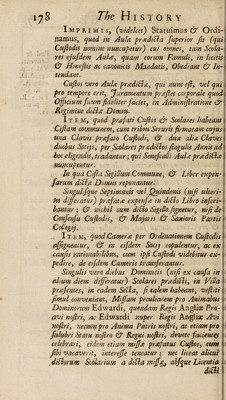 178 The HISTORY
IMPRIMIS, (videlicet) Statuimus & Ordi-
namus, quod in Aula prædicta superior sit (qui
Custodis nomine nuncupetur) cui omnes, tam Scola-
res ejusdem Aulæ, quam eorum Famuli, in licitis
& Honestis ac canonicis Mandatis, Obediant & In-
tendant.
Custos vero Aulæ prædictæ, qui nunc est, vel qui
pro tempore erit, Juramentum præstet corporale quod
Officium suum fideliter faciet, in Administratione &
Regimine dictæ Domus.
ITEM, quod præfati Custos & Scolares habeant
Cistam communem, cum tribus Seruris firmatam cujus
una Clavis præfato Custodi, & duæ aliæ Claves
duobus Socijs, per Scolares prædictos singulis Annis ad
hoc eligendis, tradantur; qui Senescali Aulæ prædictæ
nuncupentur.
In qua Cista Sigillum Commune, & Liber expen-
sarum dictæ Domus reponantur.
Singulisque Septimanis vel Quindenis (nisi ulteri-
us differatur) præfatæ expensæ in dicto Libro inseri-
bantur; & nichil cum dicto Sigillo signetur, nisi de
Consensu Custodis, & Majoris & Sanioris Partis
Collegij.
ITEM, quod Cameræ per Ordinationem Custodis
assignentur, & in eisdem Socij copulentur, ac ex
causis rationabilibus, cum ipsi Custodi videbitur ex-
pedire, de eisdem Cameris transferantur.
Singulis vero diebus Dominicis (nisi ex causa in
alium diem differatur) Scolares prædicti, in Villa
præsentes, in eadem Secta, si talem habeant, vestiti
simul conveniant, Missam peculiarem pro Animabus
Dominorum Edwardi, quondam Regis Angliæ Pro-
avi nostri, ac Edwardi nuper Regis Angliæ Avi
nostri, necnon pro Anima Patris nostri, ac etiam pro
salubri Statu nostro & Regni nostri, devote facientes
celebrari, eidem etiam missæ præfatus Custos, cum
sibi vacaverit, interesse teneatur; nec liceat alicui
dictorum Scolarium a dicta missa, absque Licentia
dicti